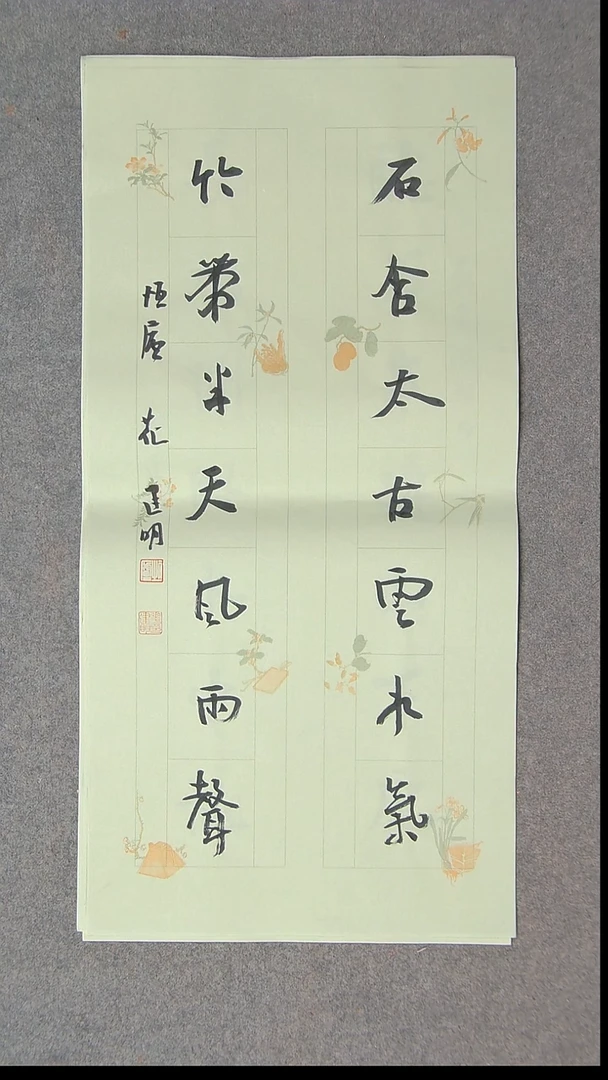 石含太古雲水氣
竹帶半天風雨聲
恒廬 匡明